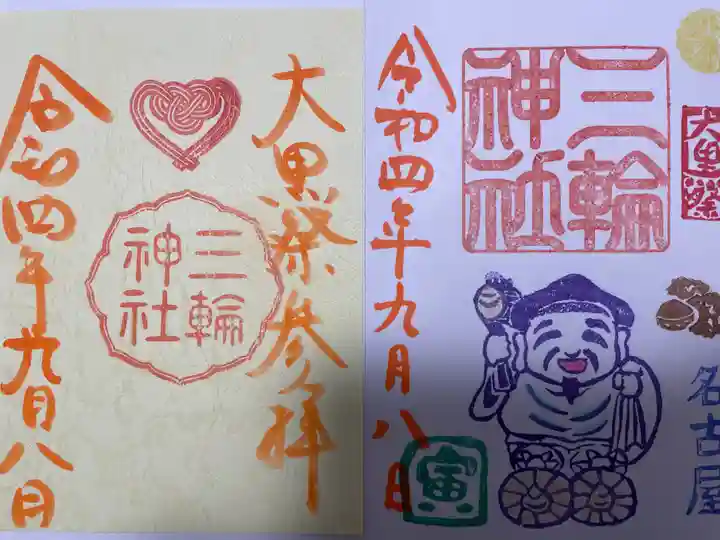 大黒祭
名古屋
三輪
神社
令和四年九月八日
寅
大黒祭参拝
三輪
神社
令和四年九月八日